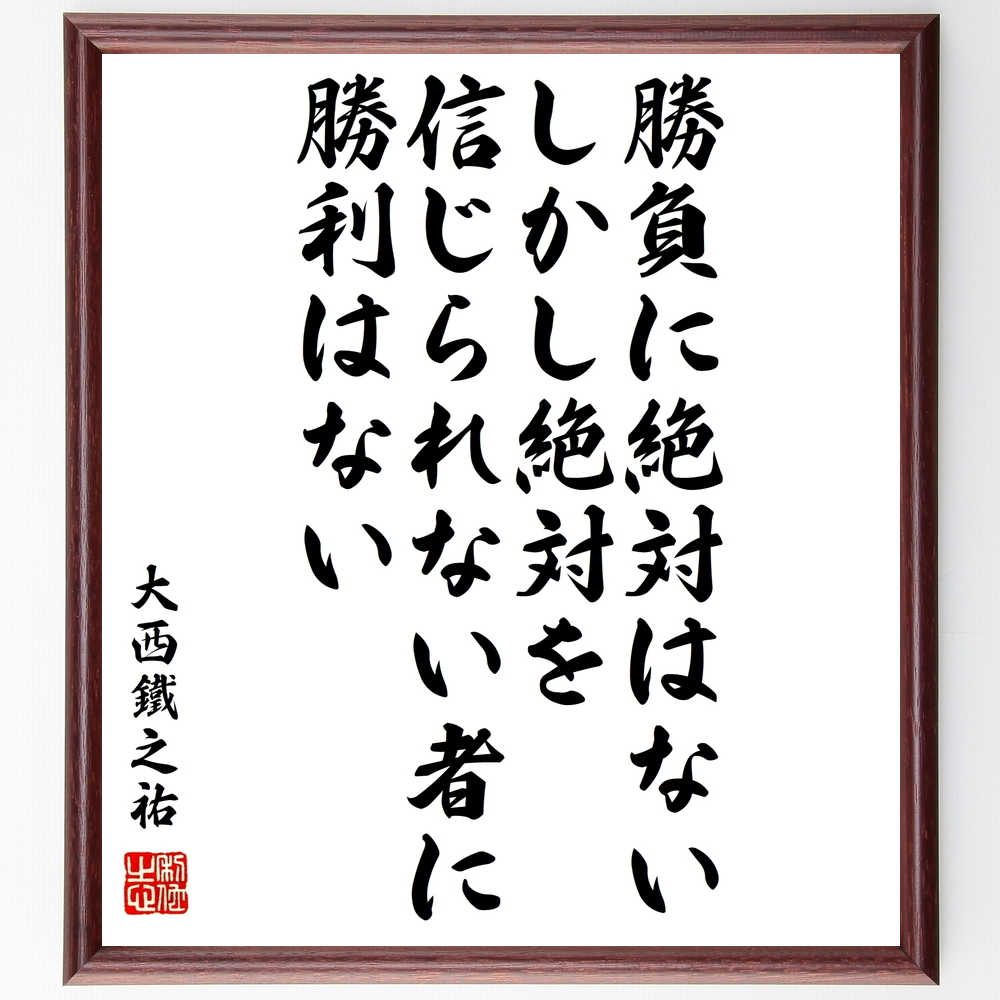 勝負に絶対はない
しかし絶対を
信じられない者に
勝利はない
大西鐵之祐